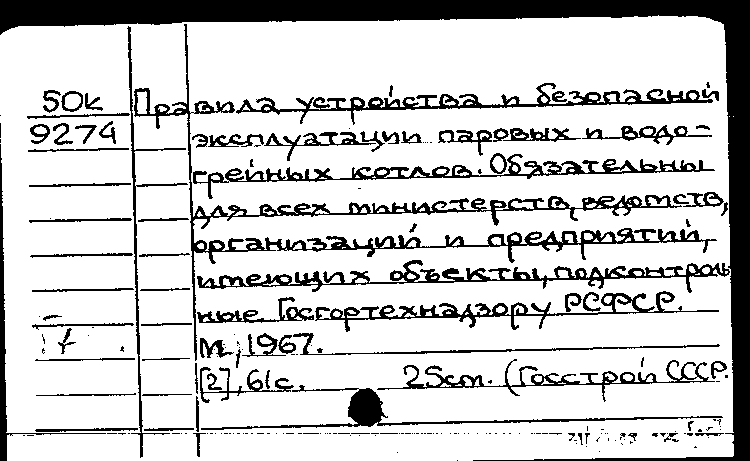 50к Правила устройства и безопасной
9274 эксплуатации паровых и водо-
грейных котлов. Обязательны
для всех министерств, ведомств,
организаций и предприятий,
имеющих объекты, подконтроль
ные Госгортехнадзору РСФСР.
М., 1967.
[2], 61с. 25см. (Госстрой СССР.